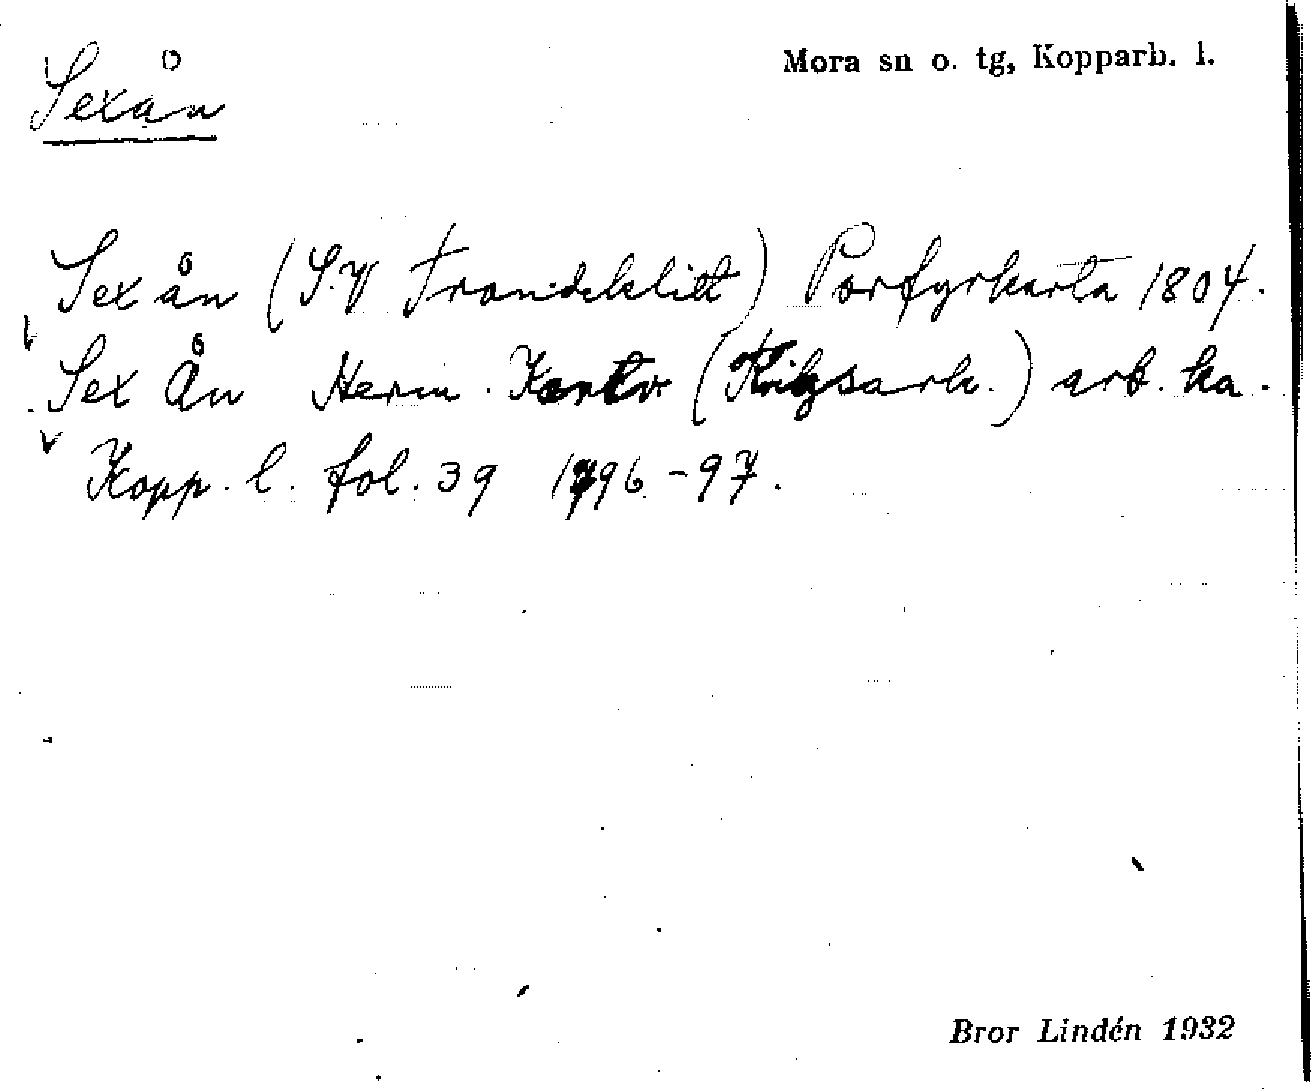 Sexån
Mora sn o. tg, Kopparb. l.
Sexån (S.V Trondeklitt) Porfyrkarta 1804.
Sex Ån Herm. (Krigsark.) arb. ka.
Kopp. l. fol. 39 1796-97.
Bror Lindén 1932